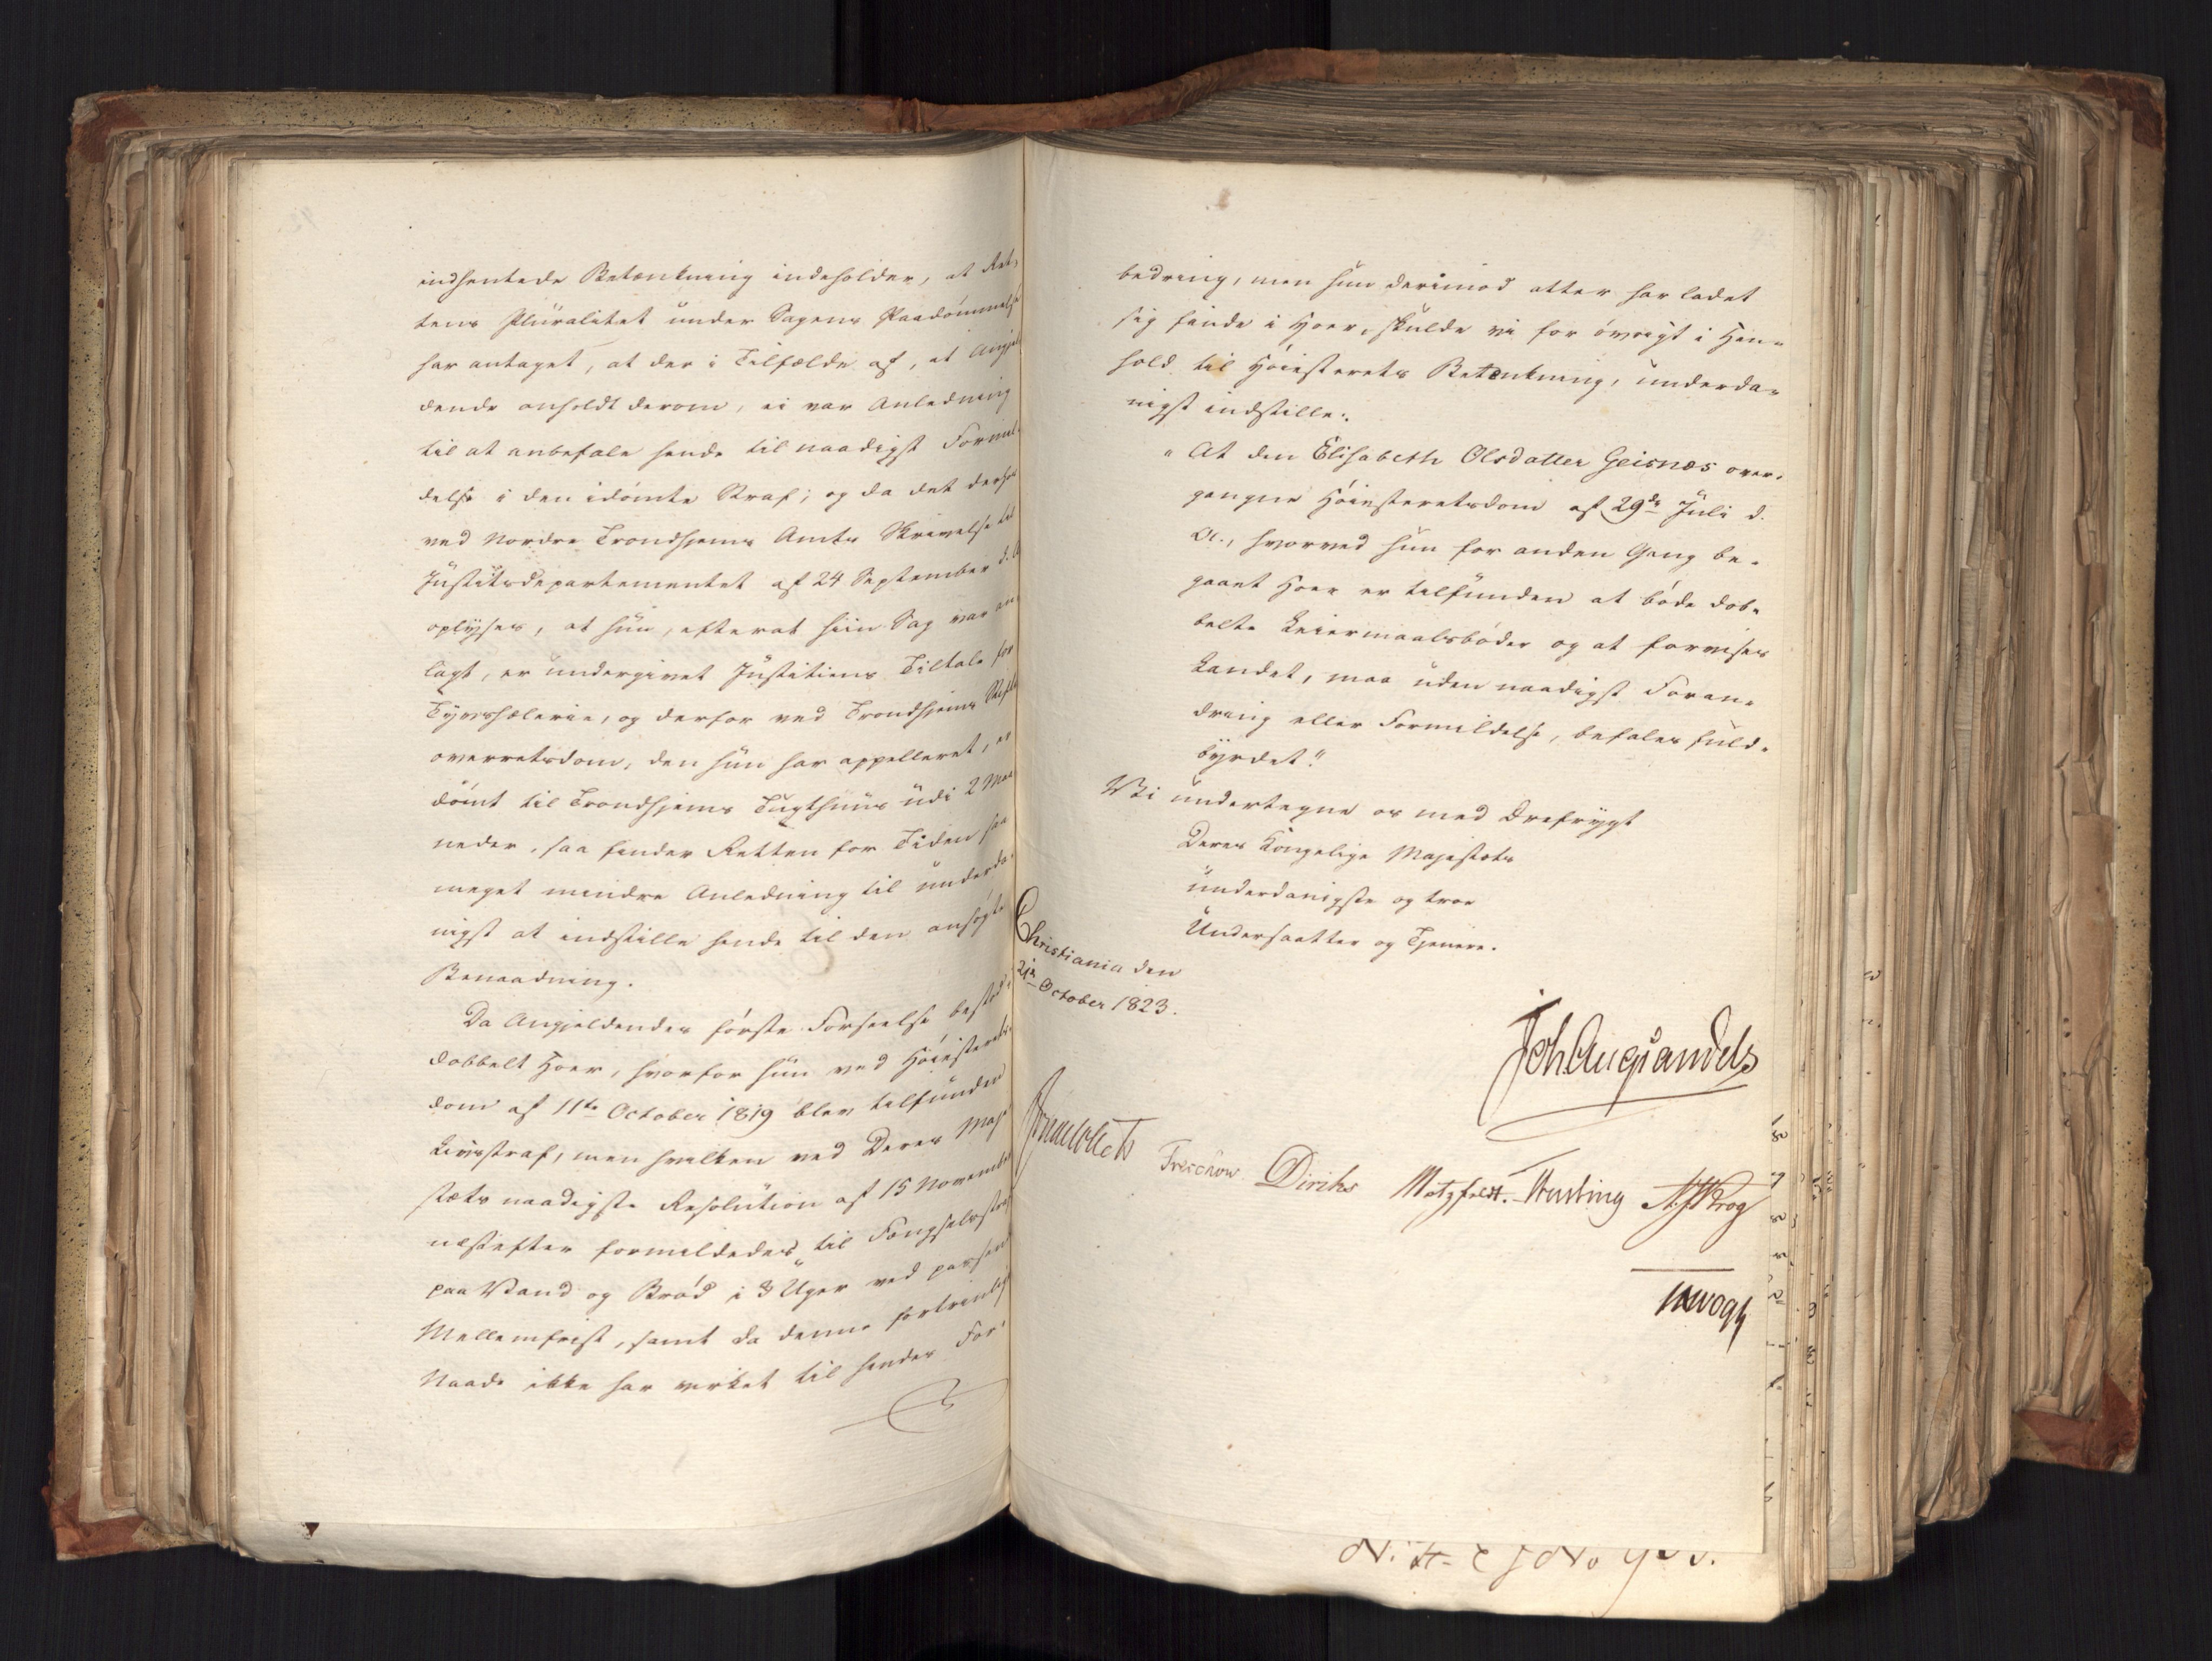 indhentede Betænkning indeholder, at Ret-
tens Pluralitet under Sagens Paadømmelse
har antaget, at der i Tilfælde af, at Angjel
dende anholdt derom, ei var Anledning
til at anbefale hende til naadigst Formil-
delse i den idømte Straf; og da det derhos
ved Nordre Trondhjems Amts Skrivelse til
Justitsdepartementet af 24 September d. A.
oplyses, at hun, efterat hiin Sag var an-
lagt, er undergivet Justitiens Tiltale for
Tyvshælerie, og derfor ved Trondhjems Stifts
overretsdom, den hun har appelleret, er
dømt til Trondhjems Tugthuus udi 2 Maa
neder, saa finder Retten for Tiden saa
meget mindre Anledning til underda-
nigst at indstille hende til den ansøgte
Benaadning.
Da Angjeldendes første Forseelse bestod i
dobbelt Hoer, hvorfor hun ved Høiesterets-
dom af 11te October 1819 blev tilfunden
Livsstraf, men hvilken ved Deres Maje
stæts naadigste Resolution af 15 November
næstefter formildedes til Fængselsstraf
paa Vand og Brød i 3 Uger ved passende
Mellemfrist, samt da denne fortrinlige
Naade ikke har virket til hendes For-
bedring, men hun derimod atter har ladet
sig finde i Hoer, skulde vi for øvrigt i Hen-
hold til Høiesterets Betænkning, underda-
nigst indstille:
"At den Elisabeth Olsdatter Geisnæs over-
gangne Høiesteretsdom af 29de Juli d.
A., hvorved hun for anden Gang be-
gaaet Hoer er tilfunden at bøde dob-
belte Leiermaalsbøder og at forvises
Landet, maa uden naadigst Foran-
dring eller Formildelse, befales fuld-
byrdet."
Vi undertegne os med Ærefrygt
Deres Kongelige Majestæts
underdanigste og troe
Undersaatter og Tjenere.
Christiania den
21de October 1823.
Joh Aug Sandels
JCollett
Treschow Diriks Motzfeldt. Hersting Krog
Vogt